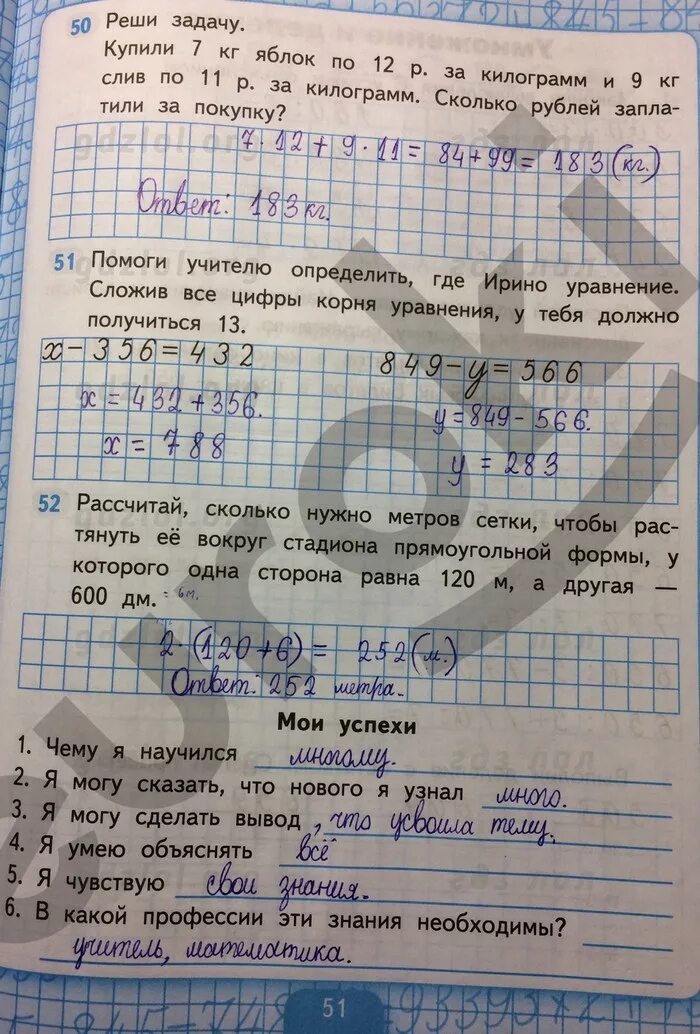 50 Реши задачу.
Купили 7 кг яблок по 12 р. за килограмм и 9 кг
слив по 11 р. за килограмм. Сколько рублей запла-
тили за покупку?
7·12+9·11=84+99=183(кг.)
Ответ: 183кг.
51 Помоги учителю определить, где Ирино уравнение.
Сложив все цифры корня уравнения, у тебя должно
получиться 13.
x-356=432
849-y=566
x=432+356.
y=849-566.
x=788
y=283
52 Рассчитай, сколько нужно метров сетки, чтобы рас-
тянуть её вокруг стадиона прямоугольной формы, у
которого одна сторона равна 120 м, а другая —
600 дм. = 6м.
2·(120+6)= 252(м.)
Ответ: 252 метра.
Мои успехи
1. Чему я научился многому.
2. Я могу сказать, что нового я узнал много.
3. Я могу сделать вывод, что усвоила тему.
4. Я умею объяснять всё
5. Я чувствую свои знания.
6. В какой профессии эти знания необходимы?
учитель, математика.
51
euroki
gdzlol.org